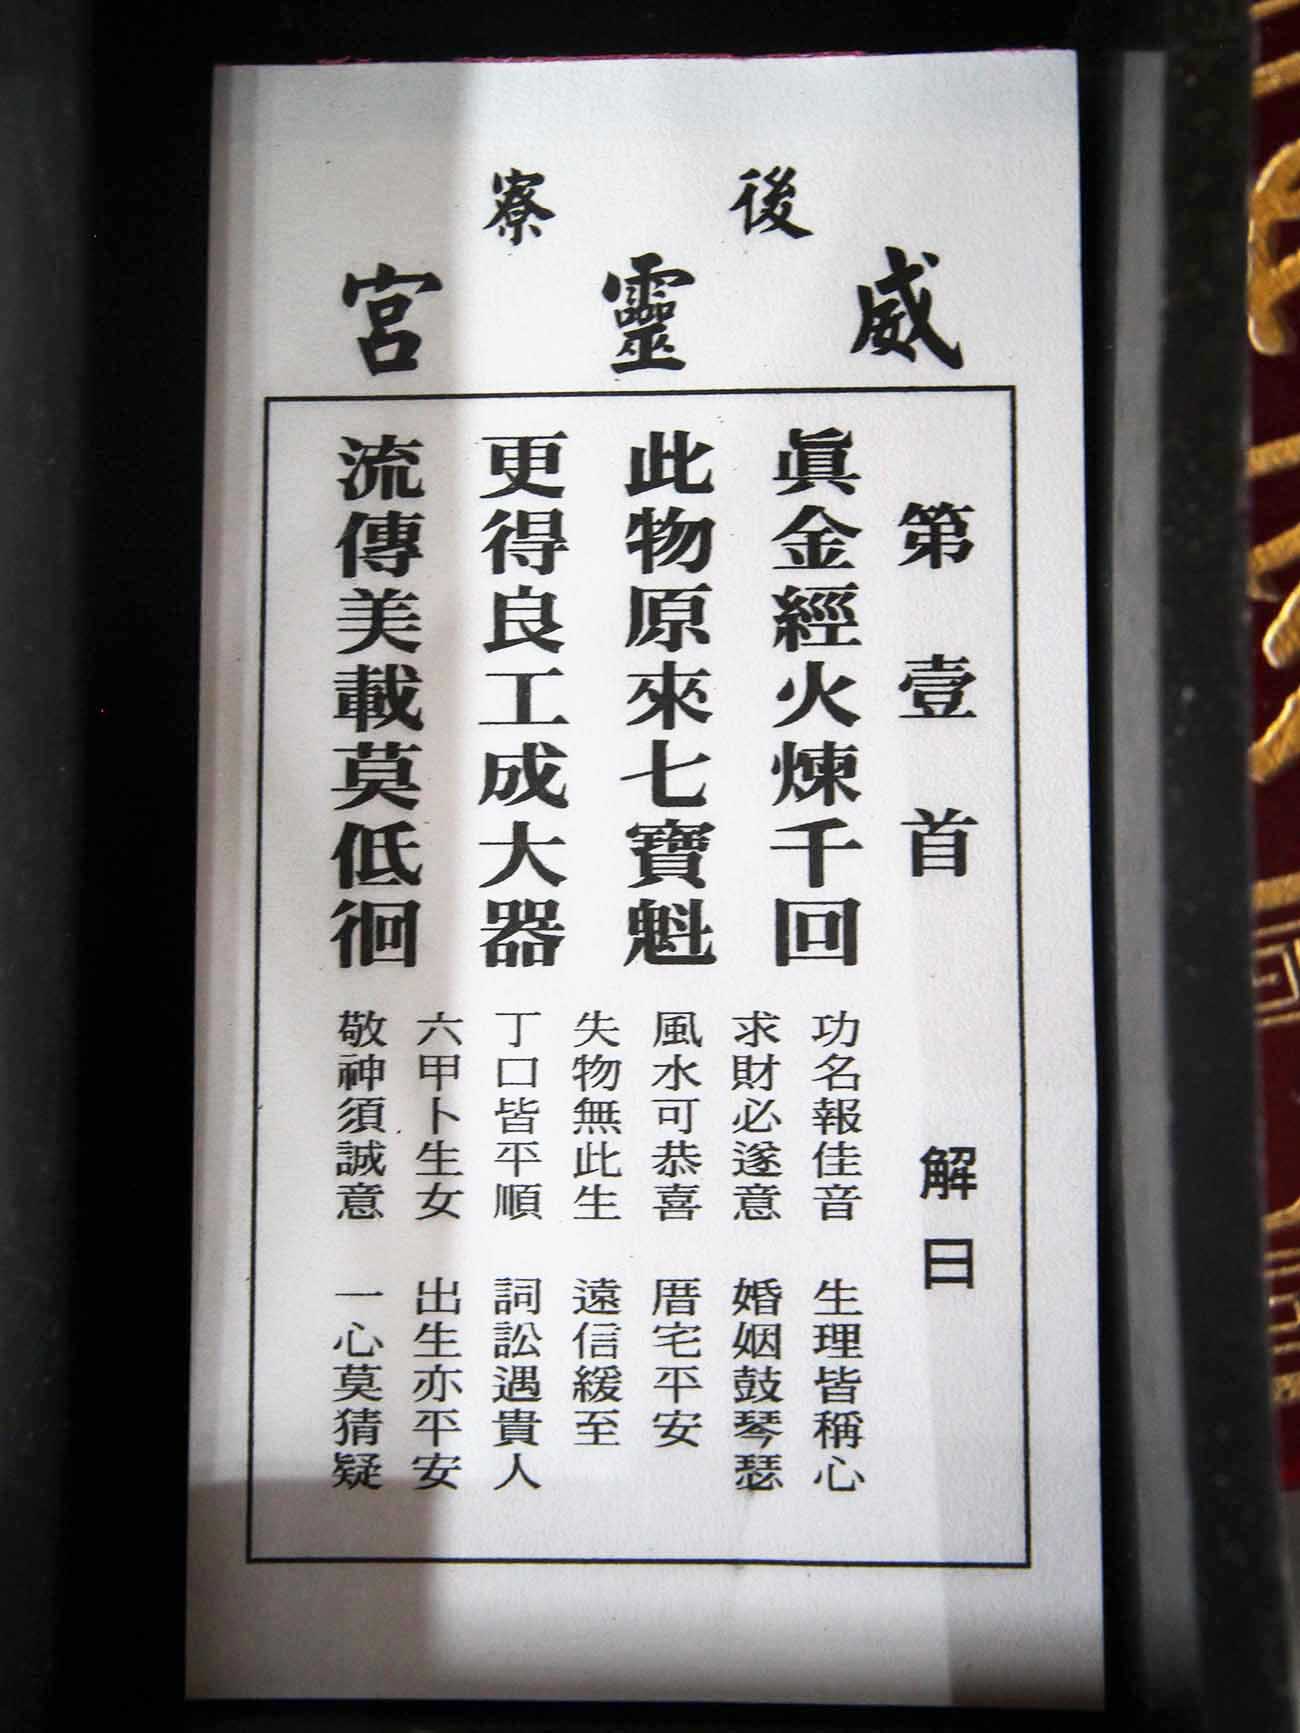 後寮
威靈宮
第壹首
眞金經火煉千回
此物原來七寶魁
更得良工成大器
流傳美載莫低徊
解曰
功名報佳音 生理皆稱心
求財必遂意 婚姻鼓琴瑟
風水可恭喜 厝宅平安
失物無此生 遠信緩至
丁口皆平順 詞訟遇貴人
六甲卜生女 出生亦平安
敬神須誠意 一心莫猜疑